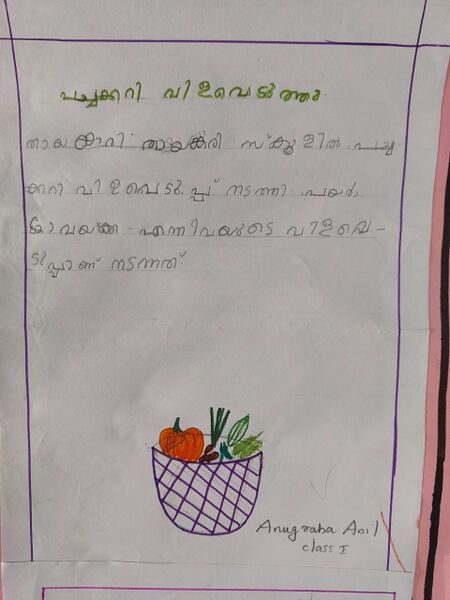 പച്ചക്കറി വിളവെടുത്തു.
തായങ്കരി: തായങ്കരി സ്കൂളിൽ പച്ച
ക്കറി വിളവെടുപ്പ് നടത്തി. പയർ,
കോവയ്ക്ക എന്നിവയുടെ വിളവെ-
ടുപ്പാണ് നടന്നത്.
Anugraha Anil
class I